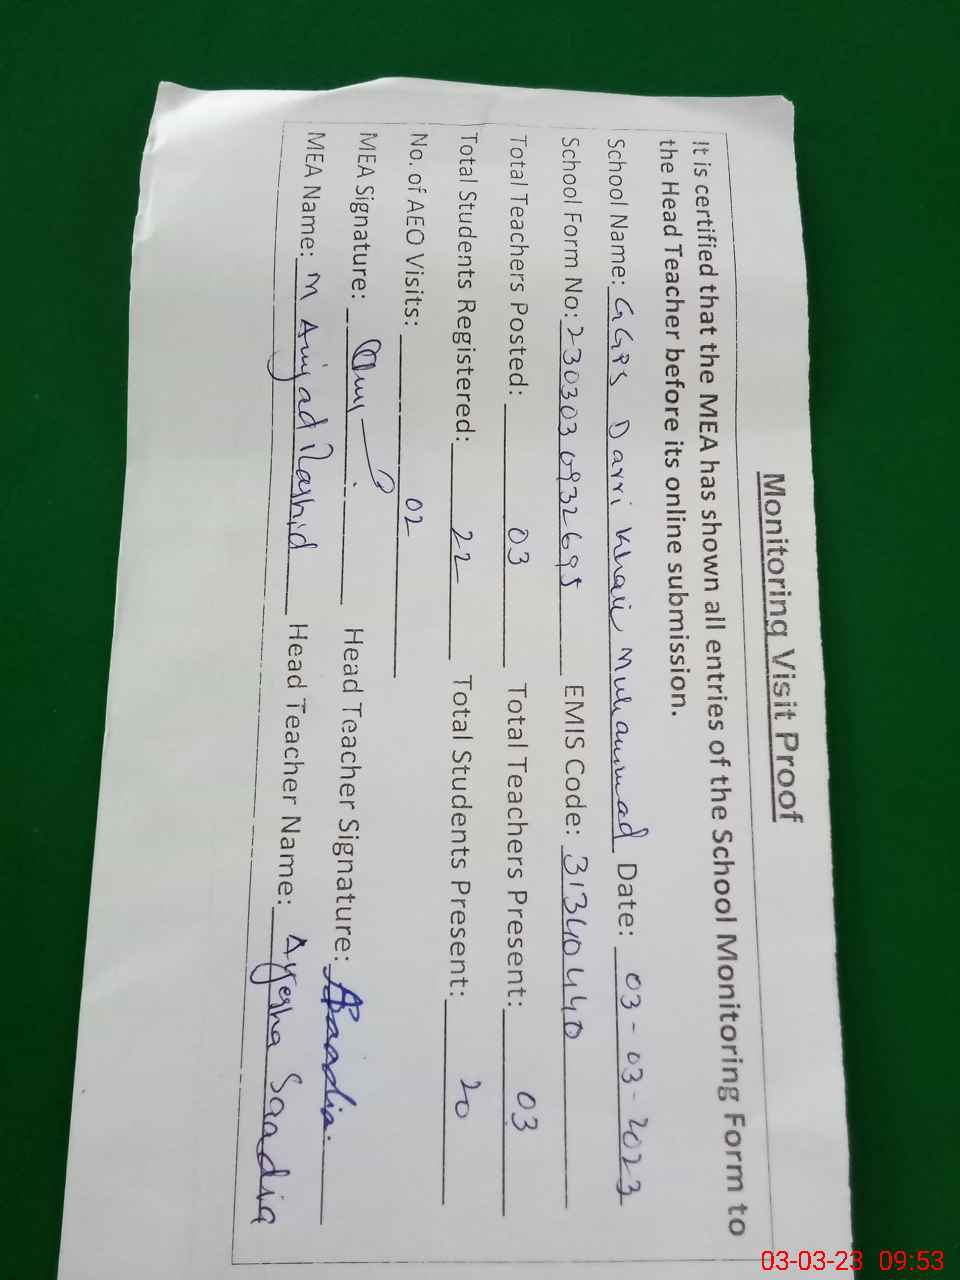 Monitoring Visit Proof
It is certified that the MEA has shown all entries of the School Monitoring Form to
the Head Teacher before its online submission.
School Name: GGPS Darri Khan Muhammad Date: 03-03-2023
School Form No: 2303030932695 EMIS Code: 31340440
Total Teachers Posted: 03 Total Teachers Present: 03
Total Students Registered: 22 Total Students Present: 20
No. of AEO Visits: 02
MEA Signature: Head Teacher Signature: ASaadia.
MEA Name: M Amjad Rashid Head Teacher Name: Ayesha Saadia
03-03-23 09:53